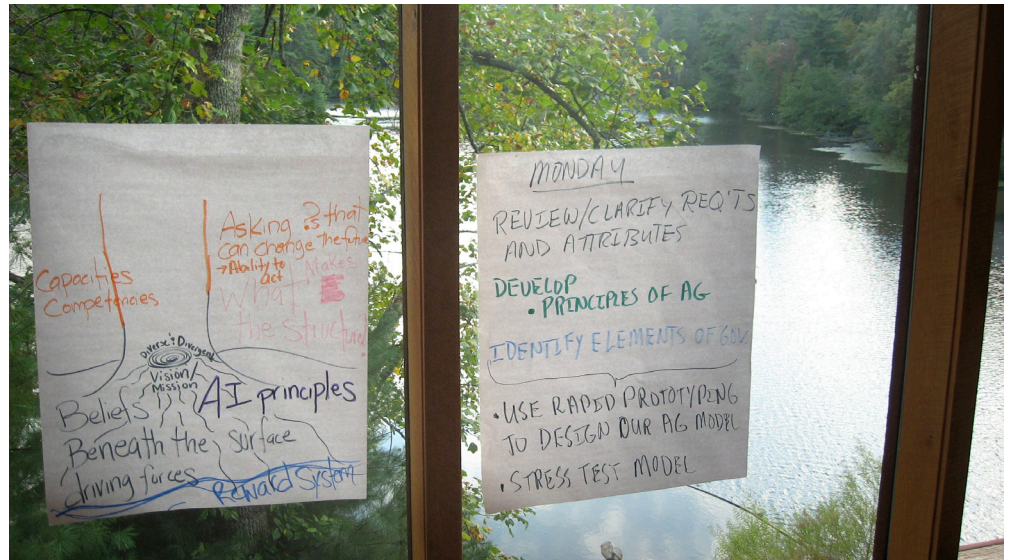 Asking ?s that
can change the future
→ Ability to
act
Capacities
Competencies
What Makes
the structure!
Diverse & Divergent
Vision/
Mission
Beliefs
AI principles
Beneath the surface
driving forces
Reward System
MONDAY
REVIEW/CLARIFY REQ'TS
AND ATTRIBUTES
DEVELOP
• PRINCIPLES OF AG
IDENTIFY ELEMENTS OF GOV
• USE RAPID PROTOTYPING
TO DESIGN OUR AG MODEL
• STRESS TEST MODEL